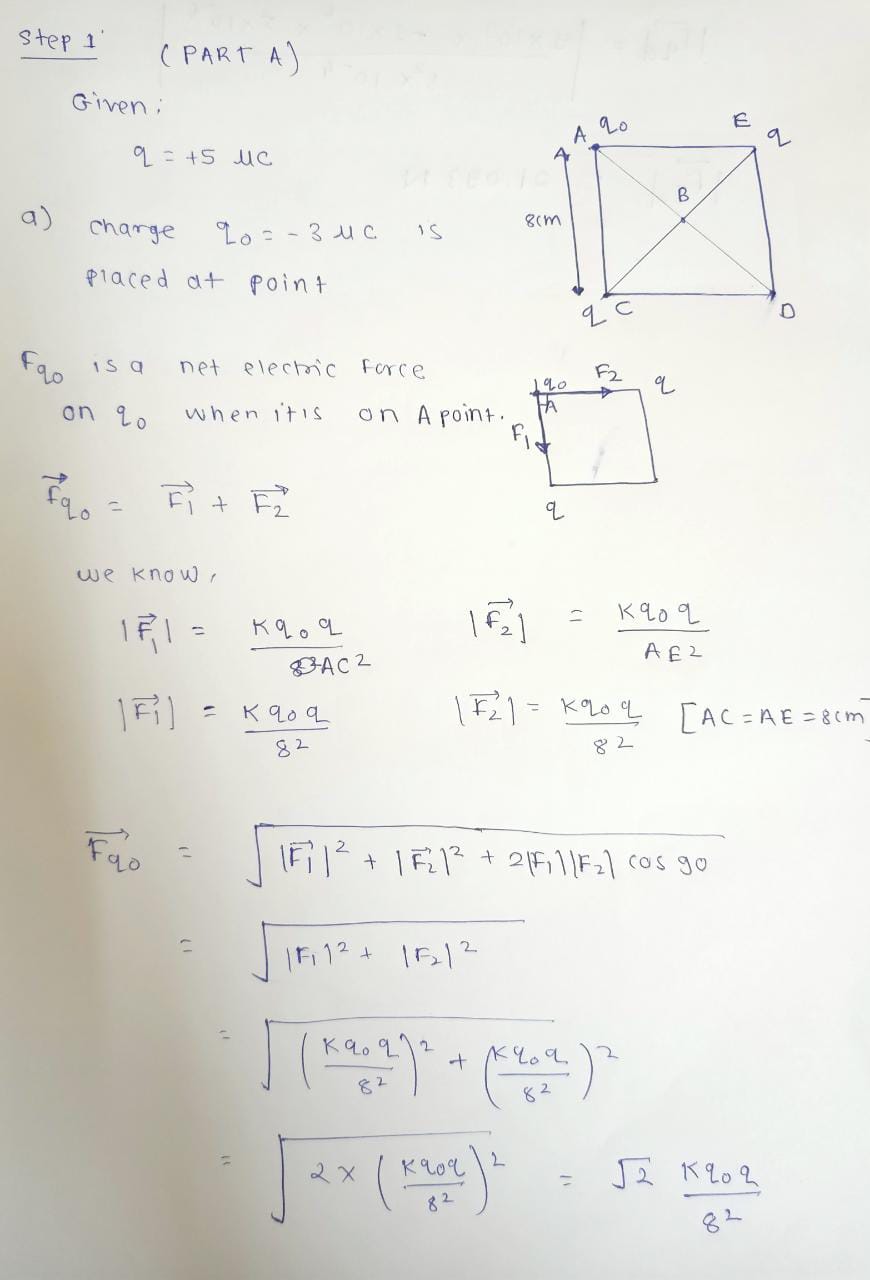 Step 1 (PART A)
Given:
q = +5 μC
A q₀ E q
B
8cm
q C D
a) charge q₀ = -3 μC is
placed at point
Fq₀ is a net electric Force
on q₀ when it is on A point.
q₀ F₂ q
A
F₁
q
F⃗q₀ = F⃗₁ + F⃗₂
we know,
|F⃗₁| = Kq₀q / AC² |F⃗₂| = Kq₀q / AE²
|F⃗₁| = Kq₀q / 8² |F⃗₂| = Kq₀q / 8² [AC = AE = 8cm]
F⃗q₀ = √(|F⃗₁|² + |F⃗₂|² + 2|F₁||F₂| cos 90)
= √(|F₁|² + |F₂|²)
= √((Kq₀q / 8²)² + (Kq₀q / 8²)²)
= √(2 × (Kq₀q / 8²)²) = √2 Kq₀q / 8²